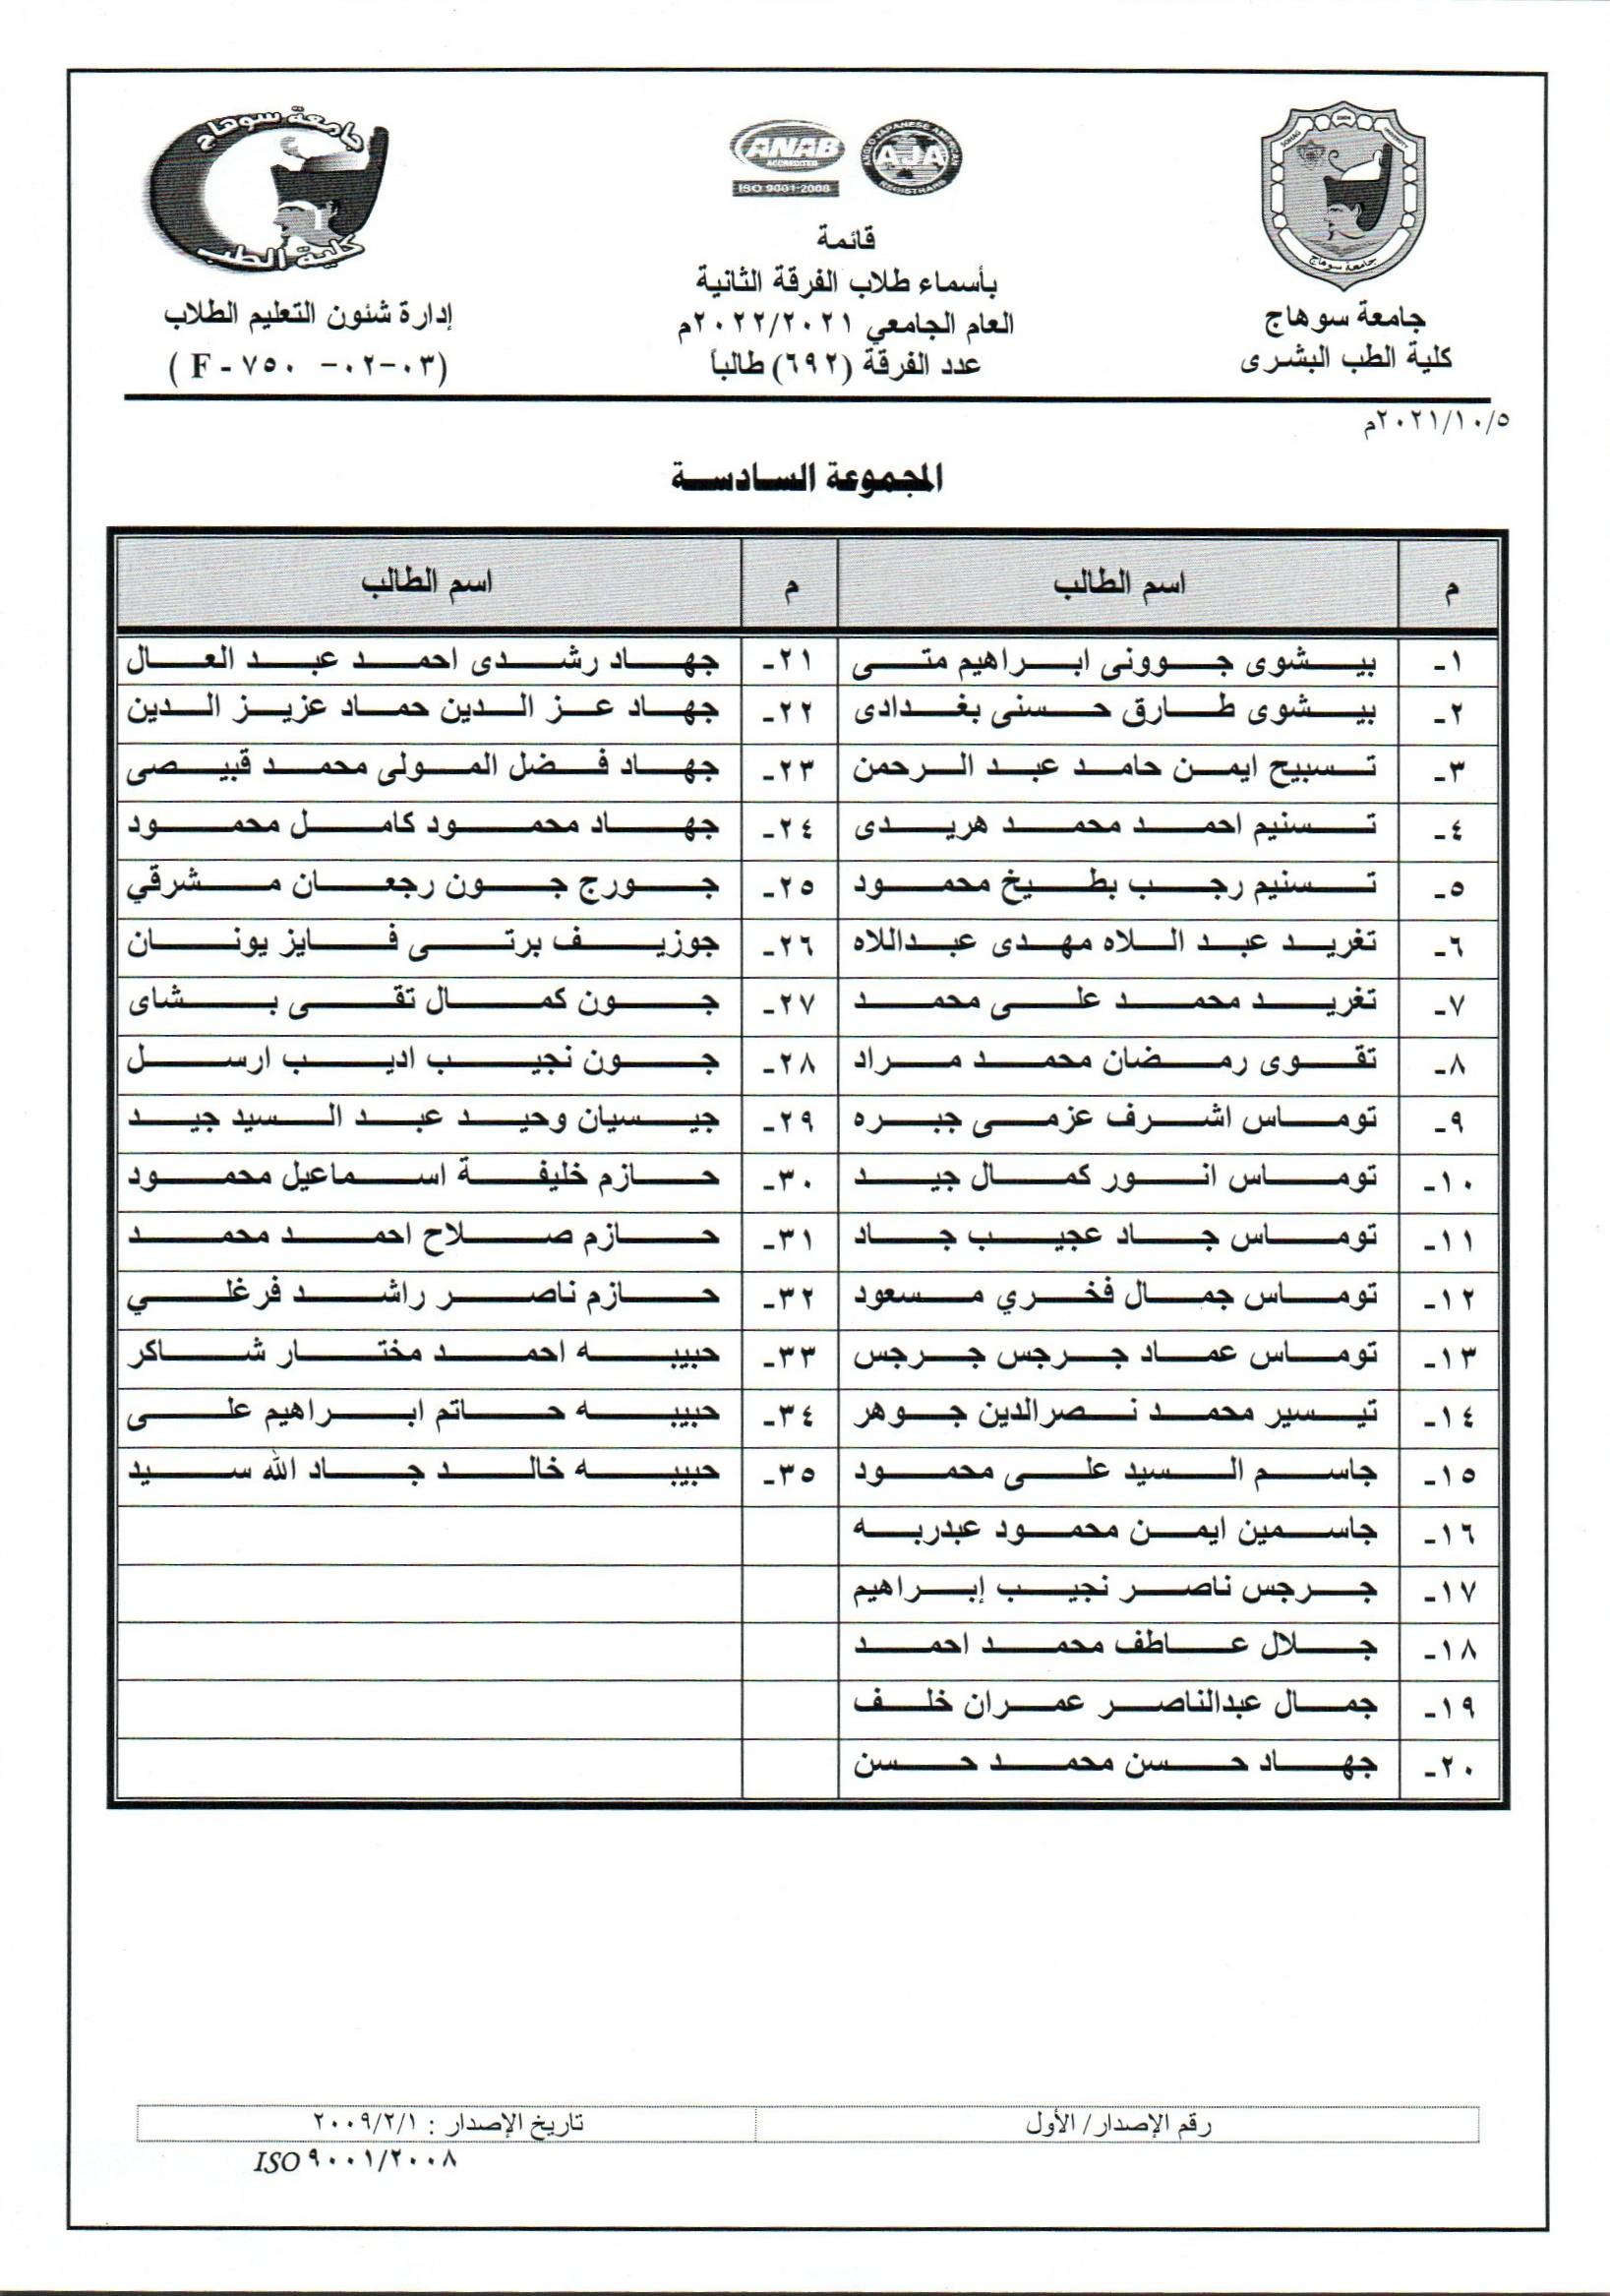 جامعة سوهاج
كلية الطب
ANAB
ACCREDITED
ISO 9001-2008
ANGLO JAPANESE AMERICAN
AJA
REGISTRARS
SOHAG UNIVERSITY
جامعة سوهاج
جامعة سوهاج
كلية الطب البشرى
قائمة
بأسماء طلاب الفرقة الثانية
العام الجامعي ٢٠٢٢/٢٠٢١م
عدد الفرقة (٦٩٢) طالباً
إدارة شئون التعليم الطلاب
(F - ٧٥٠ -٠٢-٠٣)
٢٠٢١/١٠/٥م
المجموعة السادسة
م اسم الطالب م اسم الطالب
١- بيشوى جوونى ابراهيم متى ٢١- جهاد رشدى احمد عبد العال
٢- بيشوى طارق حسنى بغدادى ٢٢- جهاد عز الدين حماد عزيز الدين
٣- تسبيح ايمن حامد عبد الرحمن ٢٣- جهاد فضل المولى محمد قبيصى
٤- تسنيم احمد محمد هريدى ٢٤- جهاد محمود كامل محمود
٥- تسنيم رجب بطيخ محمود ٢٥- جورج جون رجعان مشرقي
٦- تغريد عبد اللاه مهدى عبداللاه ٢٦- جوزيف برتى فايز يونان
٧- تغريد محمد على محمد ٢٧- جون كمال تقى بشاى
٨- تقوى رمضان محمد مراد ٢٨- جون نجيب اديب ارسل
٩- توماس اشرف عزمى جبره ٢٩- جيسيان وحيد عبد السيد جيد
١٠- توماس انور كمال جيد ٣٠- حازم خليفة اسماعيل محمود
١١- توماس جاد عجيب جاد ٣١- حازم صلاح احمد محمد
١٢- توماس جمال فخري مسعود ٣٢- حازم ناصر راشد فرغلي
١٣- توماس عماد جرجس جرجس ٣٣- حبيبه احمد مختار شاكر
١٤- تيسير محمد نصرالدين جوهر ٣٤- حبيبه حاتم ابراهيم على
١٥- جاسم السيد على محمود ٣٥- حبيبه خالد جاد الله سيد
١٦- جاسمين ايمن محمود عبدربه
١٧- جرجس ناصر نجيب إبراهيم
١٨- جلال عاطف محمد احمد
١٩- جمال عبدالناصر عمران خلف
٢٠- جهاد حسن محمد حسن
رقم الإصدار/ الأول تاريخ الإصدار : ٢٠٠٩/٢/١
ISO ٩٠٠١/٢٠٠٨